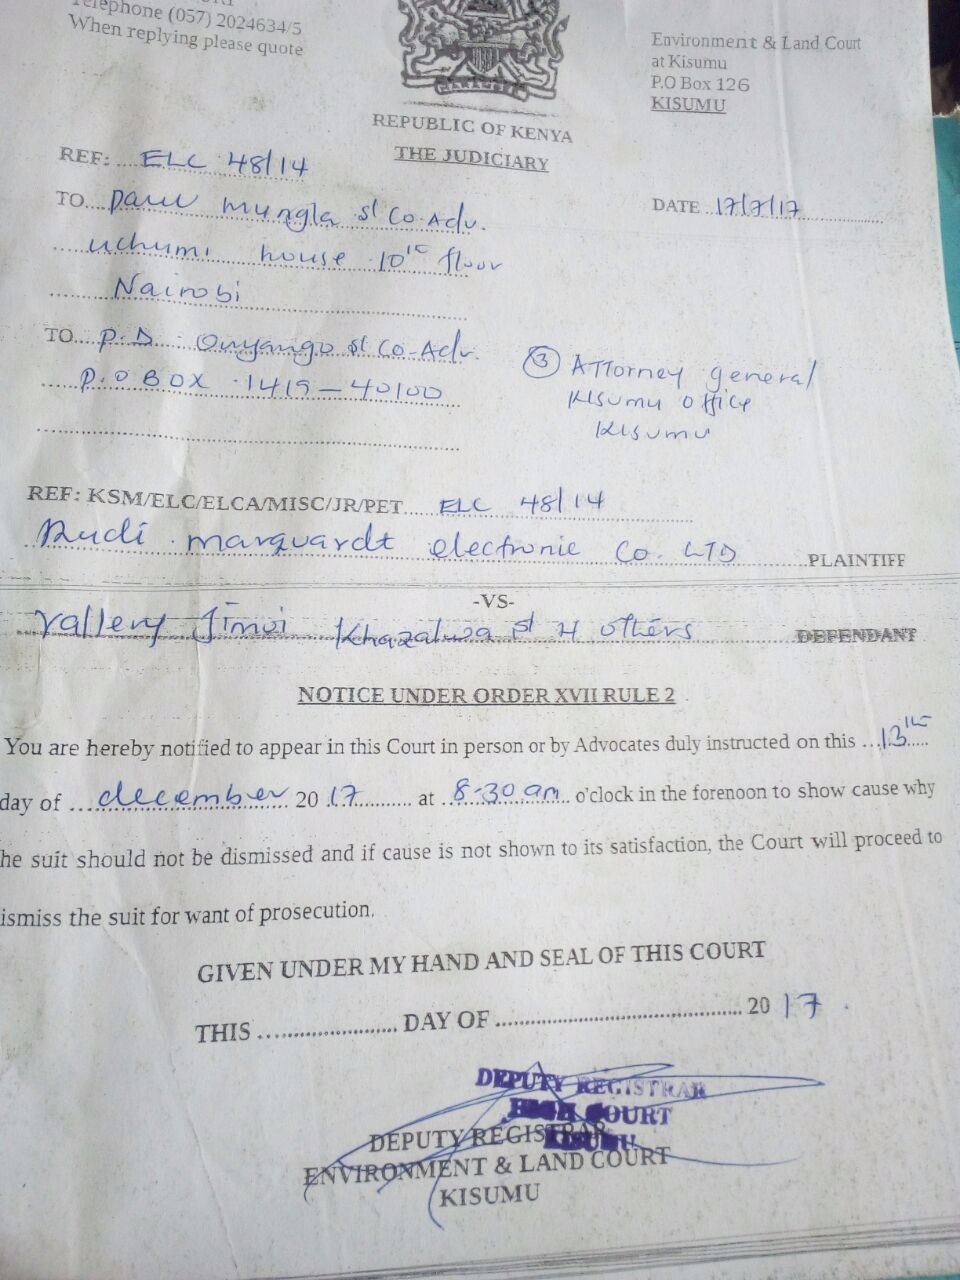 Telephone (057) 2024634/5
When replying please quote
Environment & Land Court
at Kisumu
P.O Box 126
KISUMU
REPUBLIC OF KENYA
THE JUDICIARY
REF: ELC 48/14
DATE 17/7/17
TO Paul Mungla & Co. Adv.
Uchumi house 10th floor
Nairobi
TO P.D. Onyango & Co-Adv.
P.O BOX 1419-40100
3 Attorney general
Kisumu office
Kisumu
REF: KSM/ELC/ELCA/MISC/JR/PET ELC 48/14
Rudi Marquardt electronic Co. LTD PLAINTIFF
-VS-
Vallery Khazalwa & 4 others DEFENDANT
NOTICE UNDER ORDER XVII RULE 2
You are hereby notified to appear in this Court in person or by Advocates duly instructed on this 13th
day of december 2017 at 8.30 am o'clock in the forenoon to show cause why
he suit should not be dismissed and if cause is not shown to its satisfaction, the Court will proceed to
ismiss the suit for want of prosecution.
GIVEN UNDER MY HAND AND SEAL OF THIS COURT
THIS .................... DAY OF .................................... 2017.
DEPUTY REGISTRAR
HIGH COURT
KISUMU
DEPUTY REGISTRAR
ENVIRONMENT & LAND COURT
KISUMU